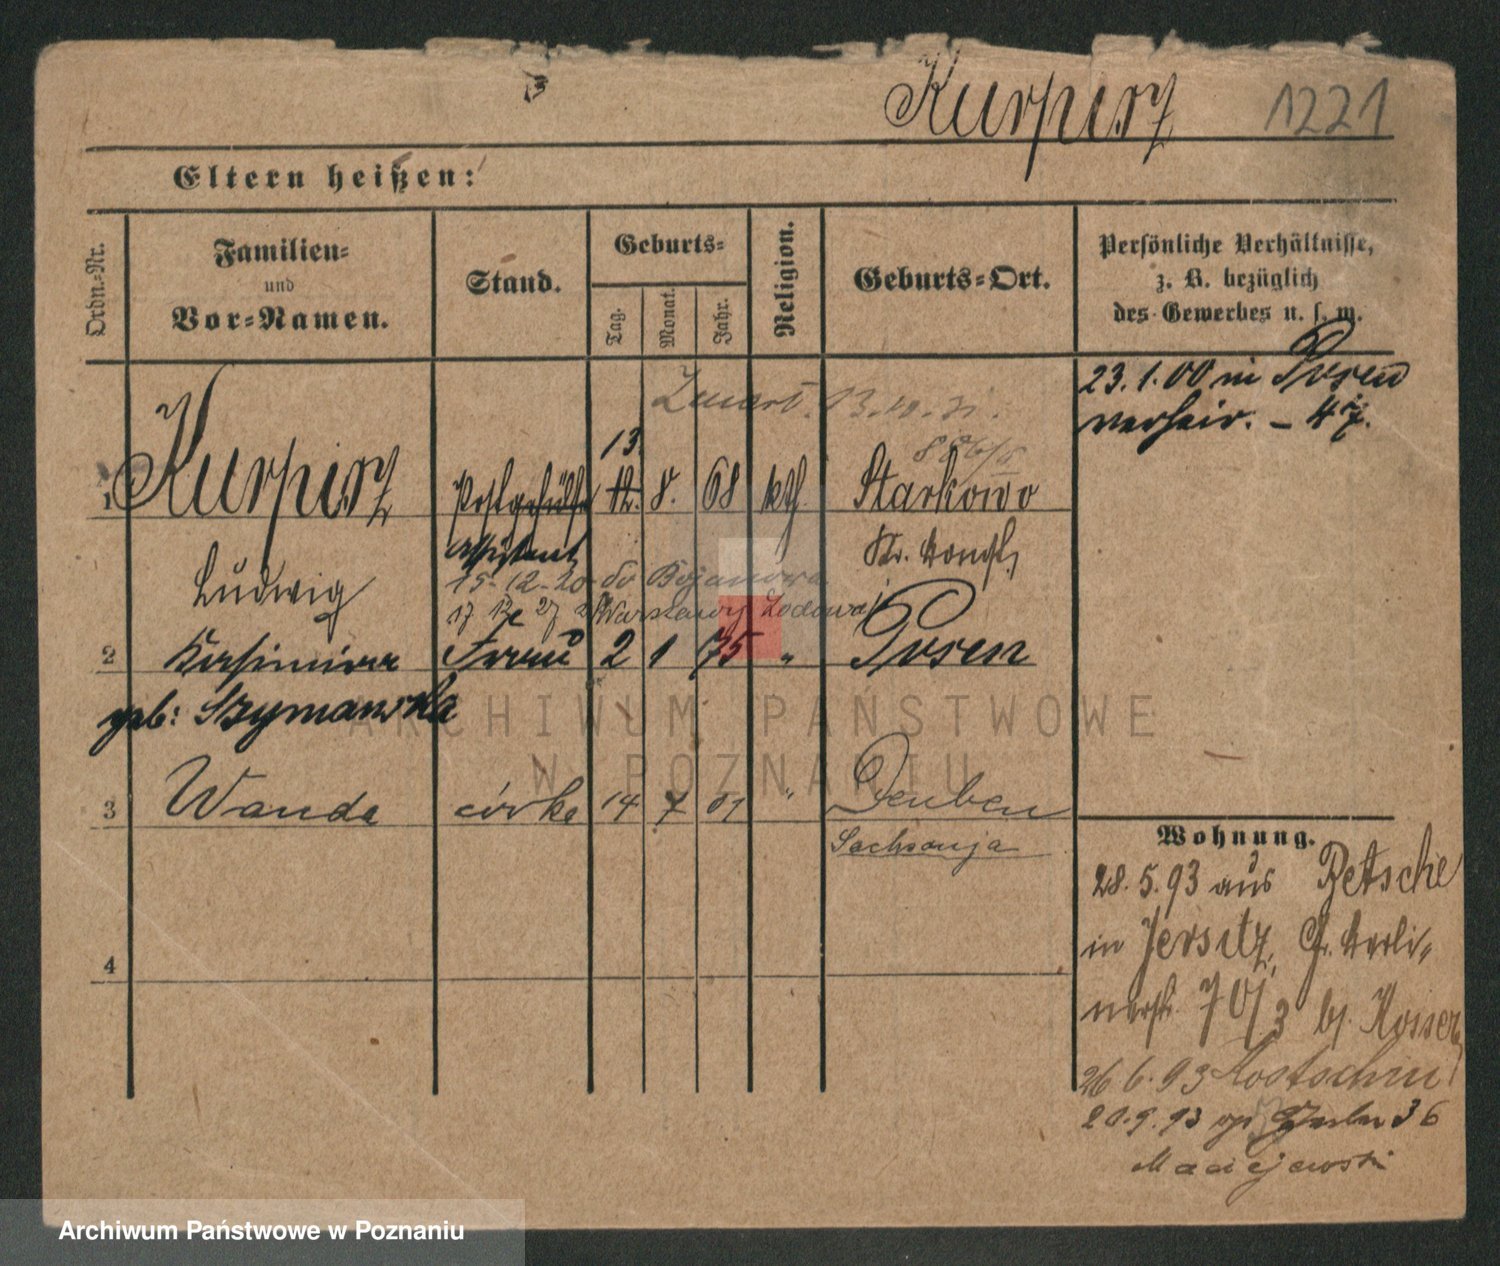 Kurpisz 1221
Eltern heißen:
Ordn.-Nr.
Familien-
und
Vor-Namen.
Stand.
Geburts-
Tag.
Monat.
Jahr.
Religion.
Geburts-Ort.
Persönliche Verhältnisse,
z. B. bezüglich
des Gewerbes u. s. w.
23.1.00 in Posen
verheir.
13.10.31.
13
1 Kurpisz Postgehülfe 12. 8. 68 kth. Starkowo
Assistent
Ludwig
15-12-20 do Bojanowa
17 12 27 Warszawy
2 Kasimira Frau 2 1 75 " Posen
geb: Szymanska
3 Wanda córka 14 7 01 " Deuben
Sachsonja
4
Wohnung.
28.5.93 aus Betsche
in Jersitz, Gr. Berli-
nerstr. 70/3 b/
26 6.93 Kostschin
20.9.93 36
Maciejewski
ARCHIWUM PAŃSTWOWE
W POZNANIU
Archiwum Państwowe w Poznaniu